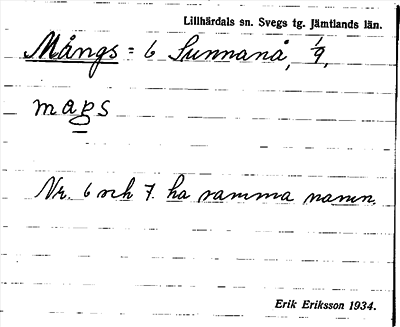 Lillhärdals sn. Svegs tg. Jämtlands län.
Mångs = 6 Sunnanå, 1/9,
mags
Nr. 6 och 7. ha samma namn.
Erik Eriksson 1934.